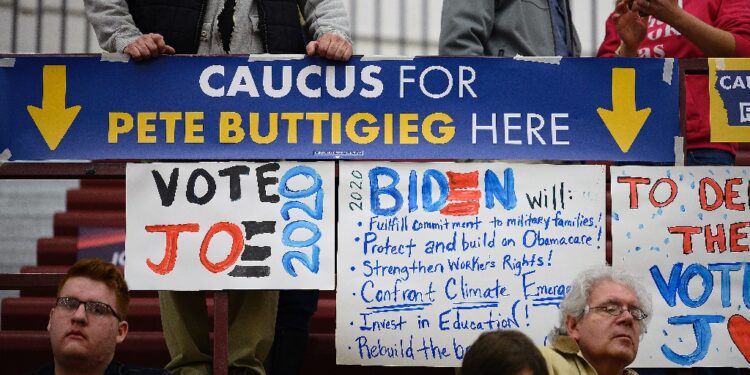 CAUCUS FOR
PETE BUTTIGIEG HERE
CAU
VOTE
JOE
2020
2020 BIDEN will:
• Fulfill commitment to military families!
• Protect and build on Obamacare!
• Strengthen Workers Rights!
• Confront Climate Emerge
• Invest in Education!
• Rebuild the b
TO DE
THE
VOT
JO